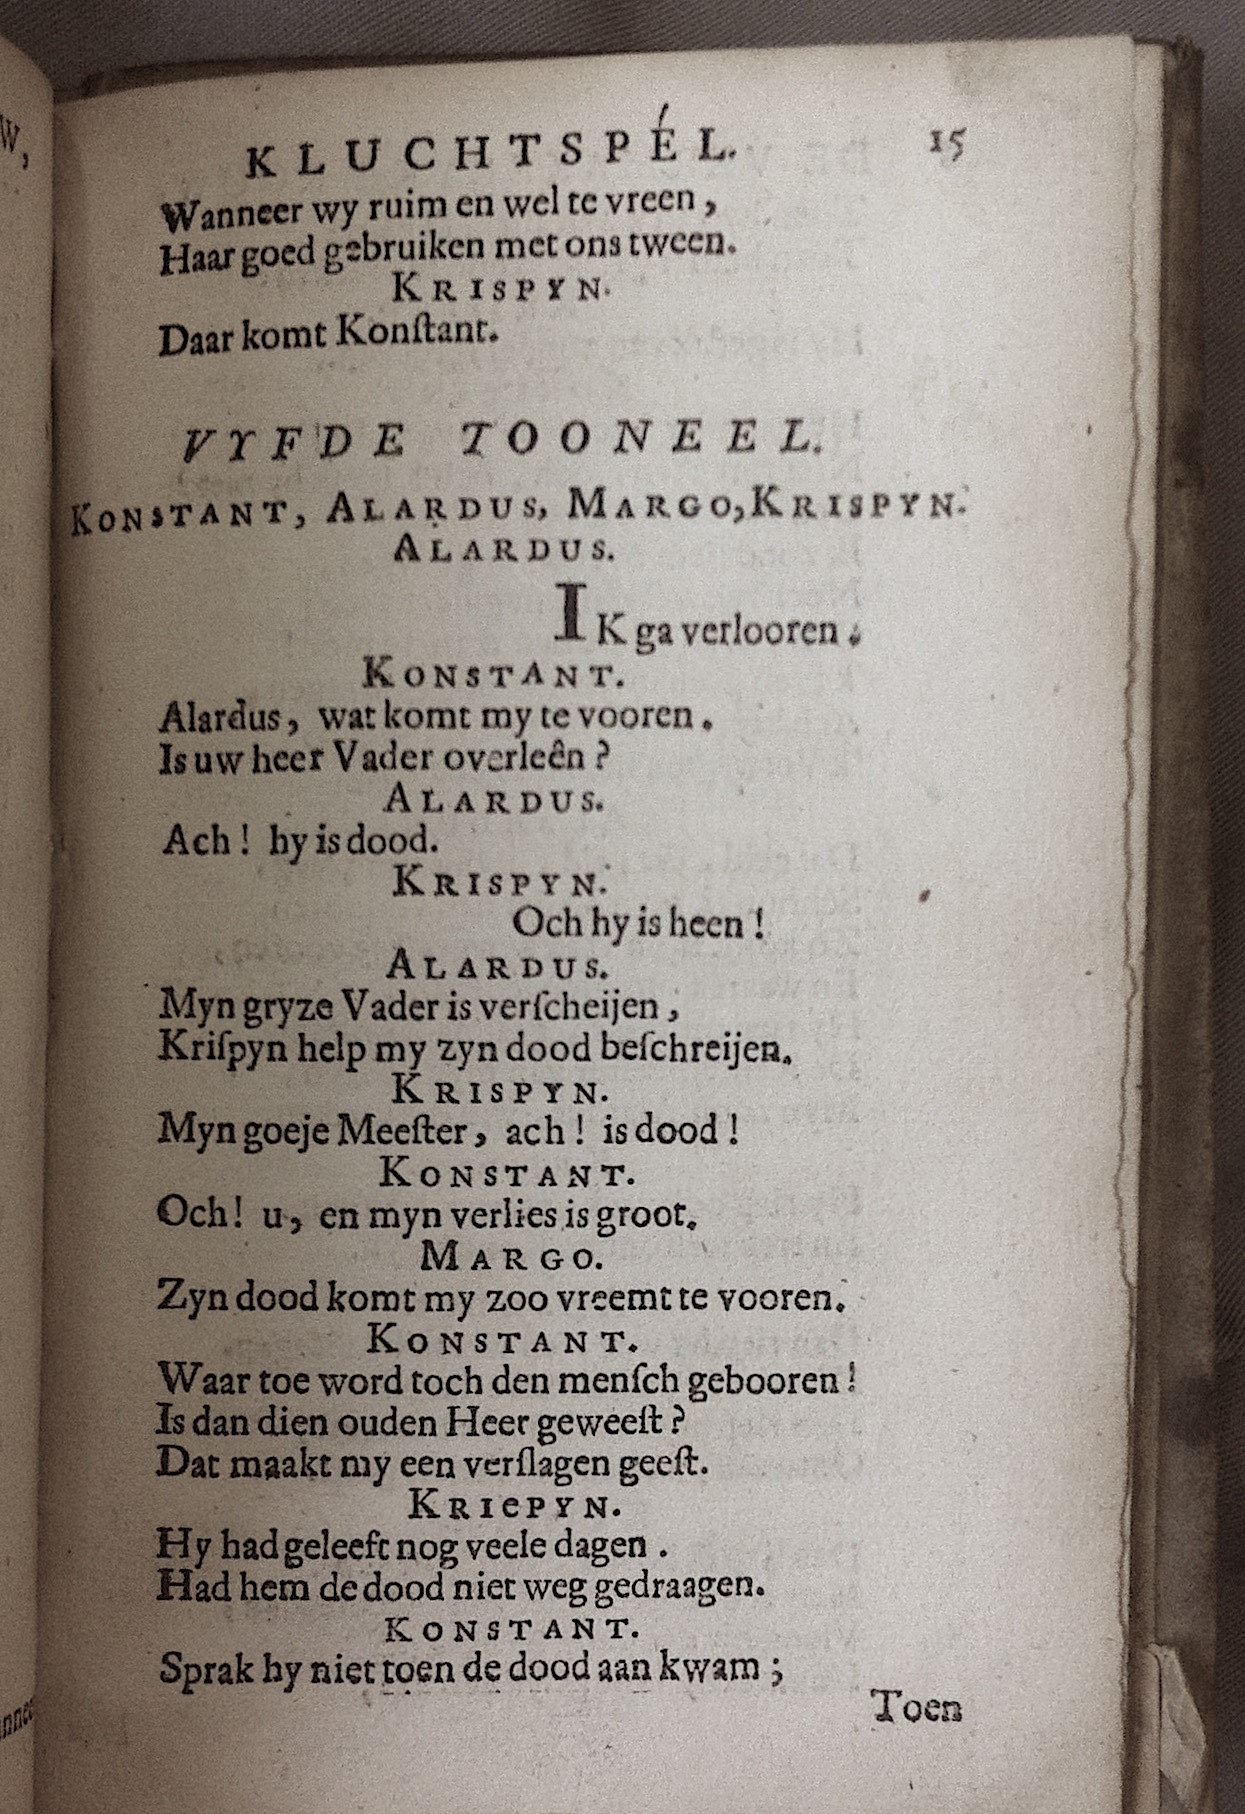 W,
KLUCHTSPÉL. 15
Wanneer wy ruim en wel te vreen,
Haar goed gebruiken met ons tween.
KRISPYN.
Daar komt Konſtant.
VYFDE TOONEEL.
KONSTANT, ALARDUS, MARGO, KRISPYN.
ALARDUS.
IK ga verlooren.
KONSTANT.
Alardus, wat komt my te vooren.
Is uw heer Vader overleên?
ALARDUS.
Ach! hy is dood.
KRISPYN.
Och hy is heen!
ALARDUS.
Myn gryze Vader is verſcheijen,
Kriſpyn help my zyn dood beſchreijen.
KRISPYN.
Myn goeje Meeſter, ach! is dood!
KONSTANT.
Och! u, en myn verlies is groot.
MARGO.
Zyn dood komt my zoo vreemt te vooren.
KONSTANT.
Waar toe word toch den menſch gebooren!
Is dan dien ouden Heer geweeſt?
Dat maakt my een verſlagen geeſt.
KRIEPYN.
Hy had geleeft nog veele dagen.
Had hem de dood niet weg gedraagen.
KONSTANT.
Sprak hy niet toen de dood aan kwam;
Toen